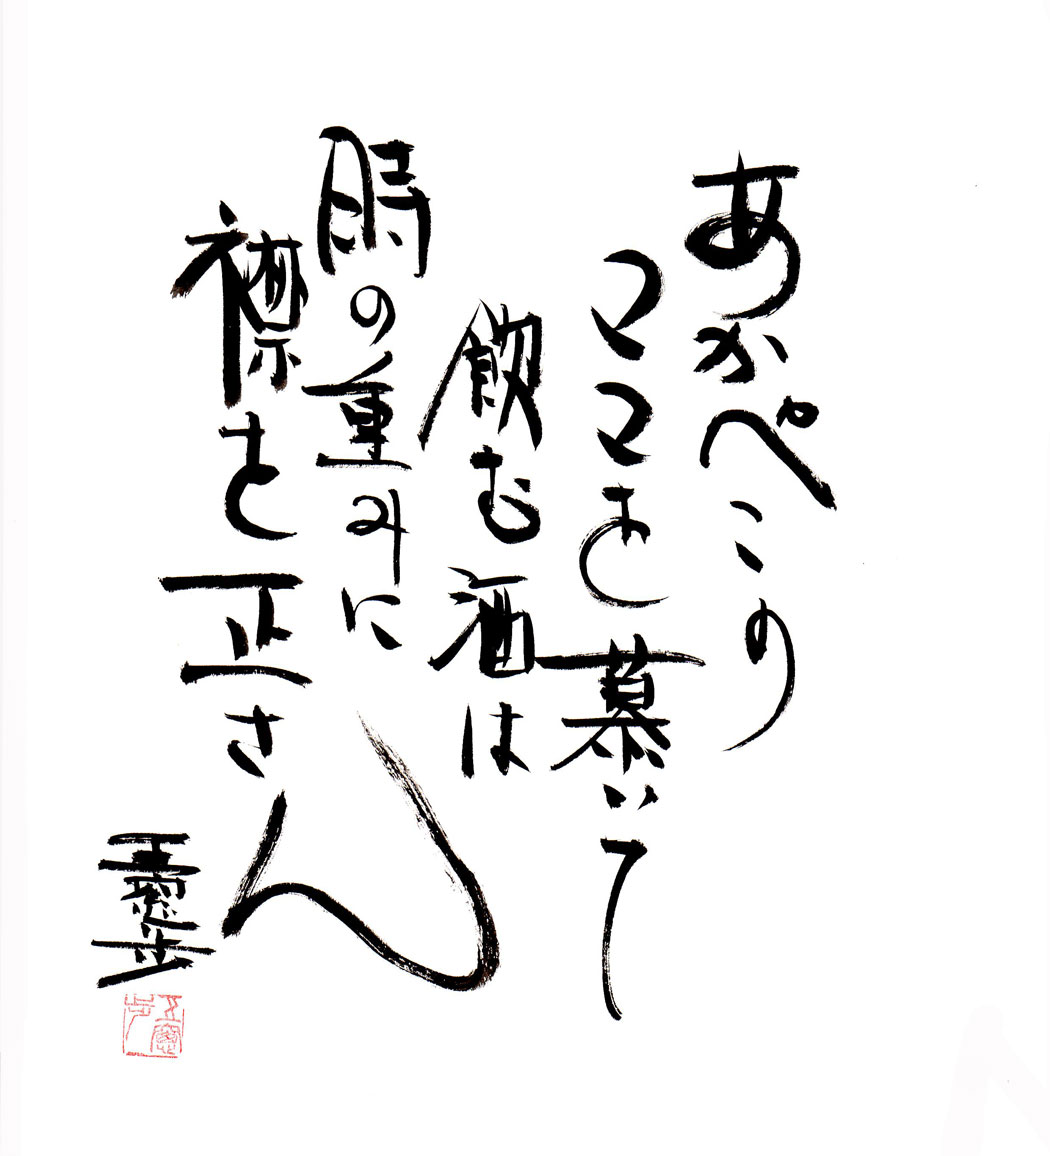 あかべこの
ママを慕いて
飲む酒は
時の重みに
襟を正さん